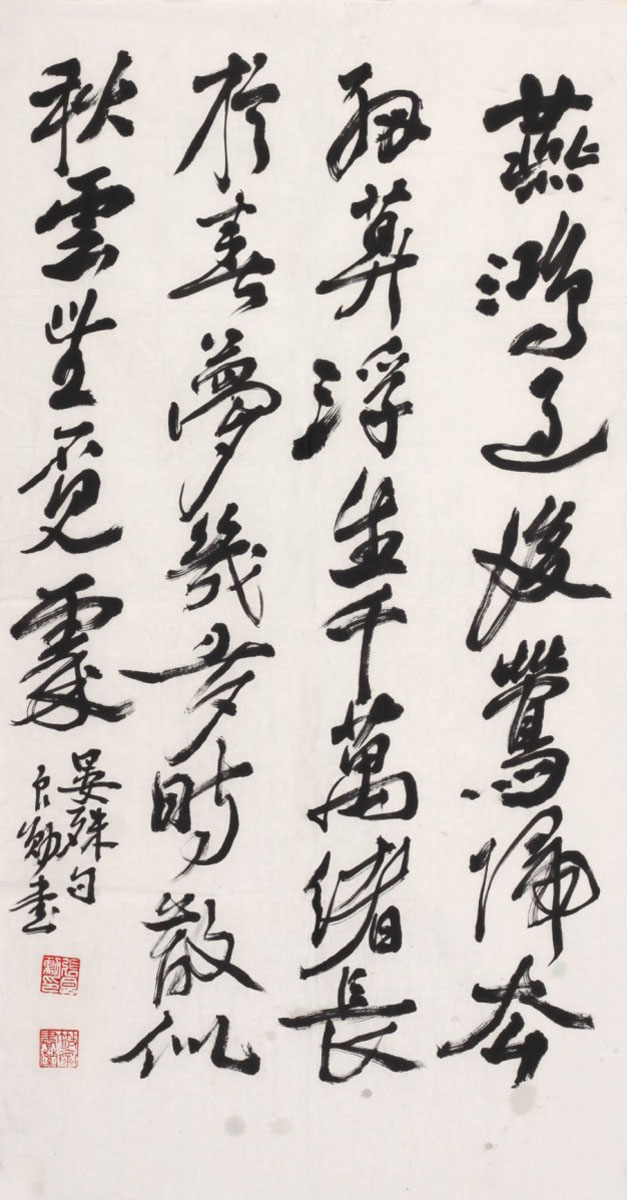 燕鴻過後鶯歸去
細算浮生千萬緒長
於春夢幾多時散似
秋雲無覓處
晏殊句
良勋書